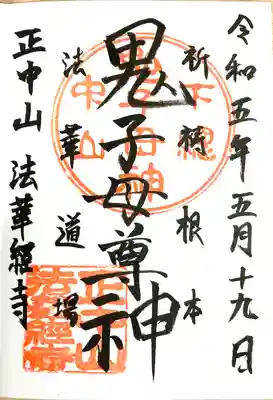 令和五年五月十九日
祈祷根本
鬼子母尊神
法華道場
正中山 法華経寺